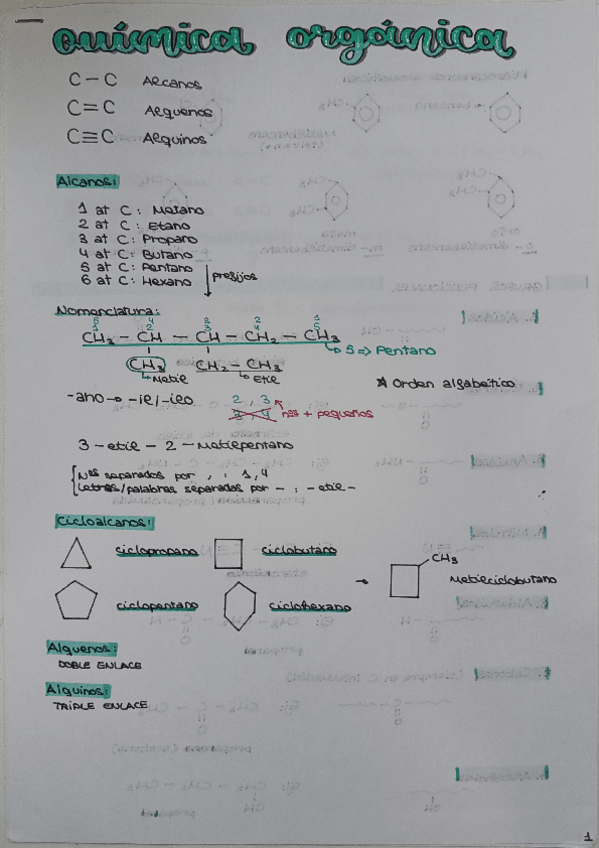 Química orgánica
C – C Alcanos
C = C Alquenos
C ≡ C Alquinos
Alcanos:
1 at C : Metano
2 at C : Etano
3 at C : Propano
4 at C : Butano
5 at C : Pentano
6 at C : Hexano
prefijos
Nomenclatura:
CH₃ – CH – CH – CH₂ – CH₃
5 => Pentano
CH₃ CH₂ – CH₃
Metil Etil
* Orden alfabético
-ano → -il/-ilo 2, 3
3 4 nºs + pequeños
3 – etil – 2 – Metilpentano
Nºs separados por , : 1,4
Letras/palabras separados por - : -etil-
Cicloalcanos:
ciclopropano ciclobutano
CH₃
→ Metilciclobutano
ciclopentano ciclohexano
Alquenos:
DOBLE ENLACE
Alquinos:
TRIPLE ENLACE
1